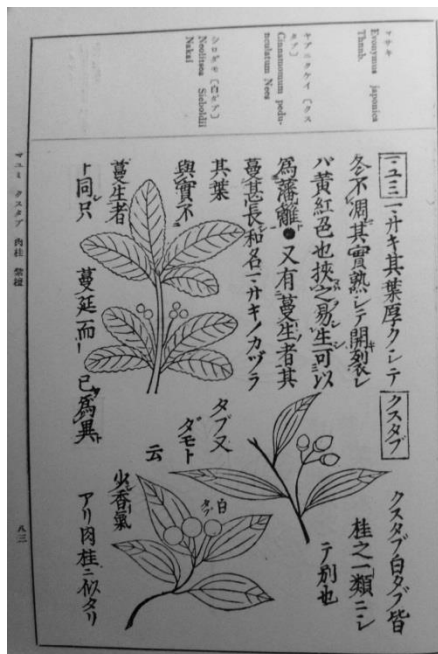 マサキ
Evonymus japonica
Thunb.
ヤブニクケイ〔クス
タブ〕
Cinnamomum pedu-
nculatum Nees
シロダモ〔白ダブ〕
Neolitsea Sieboldii
Nakai
マユミ
マサキ其葉厚クシテ
冬不凋其實熟シテ開裂レ
バ黄紅色也挾之易生可以
爲藩籬●又有蔓生者其
蔓甚長和名マサキノカヅラ
其葉
與實不
蔓生者
ト同只
蔓延而
已爲異
クスタブ
クスタブ白タブ皆
桂之一類ニシ
テ別也
タブ又
ダモト
云
白タブ
少香氣
アリ肉桂ニ似タリ
マユミ クスタブ 肉桂 紫檀
八三